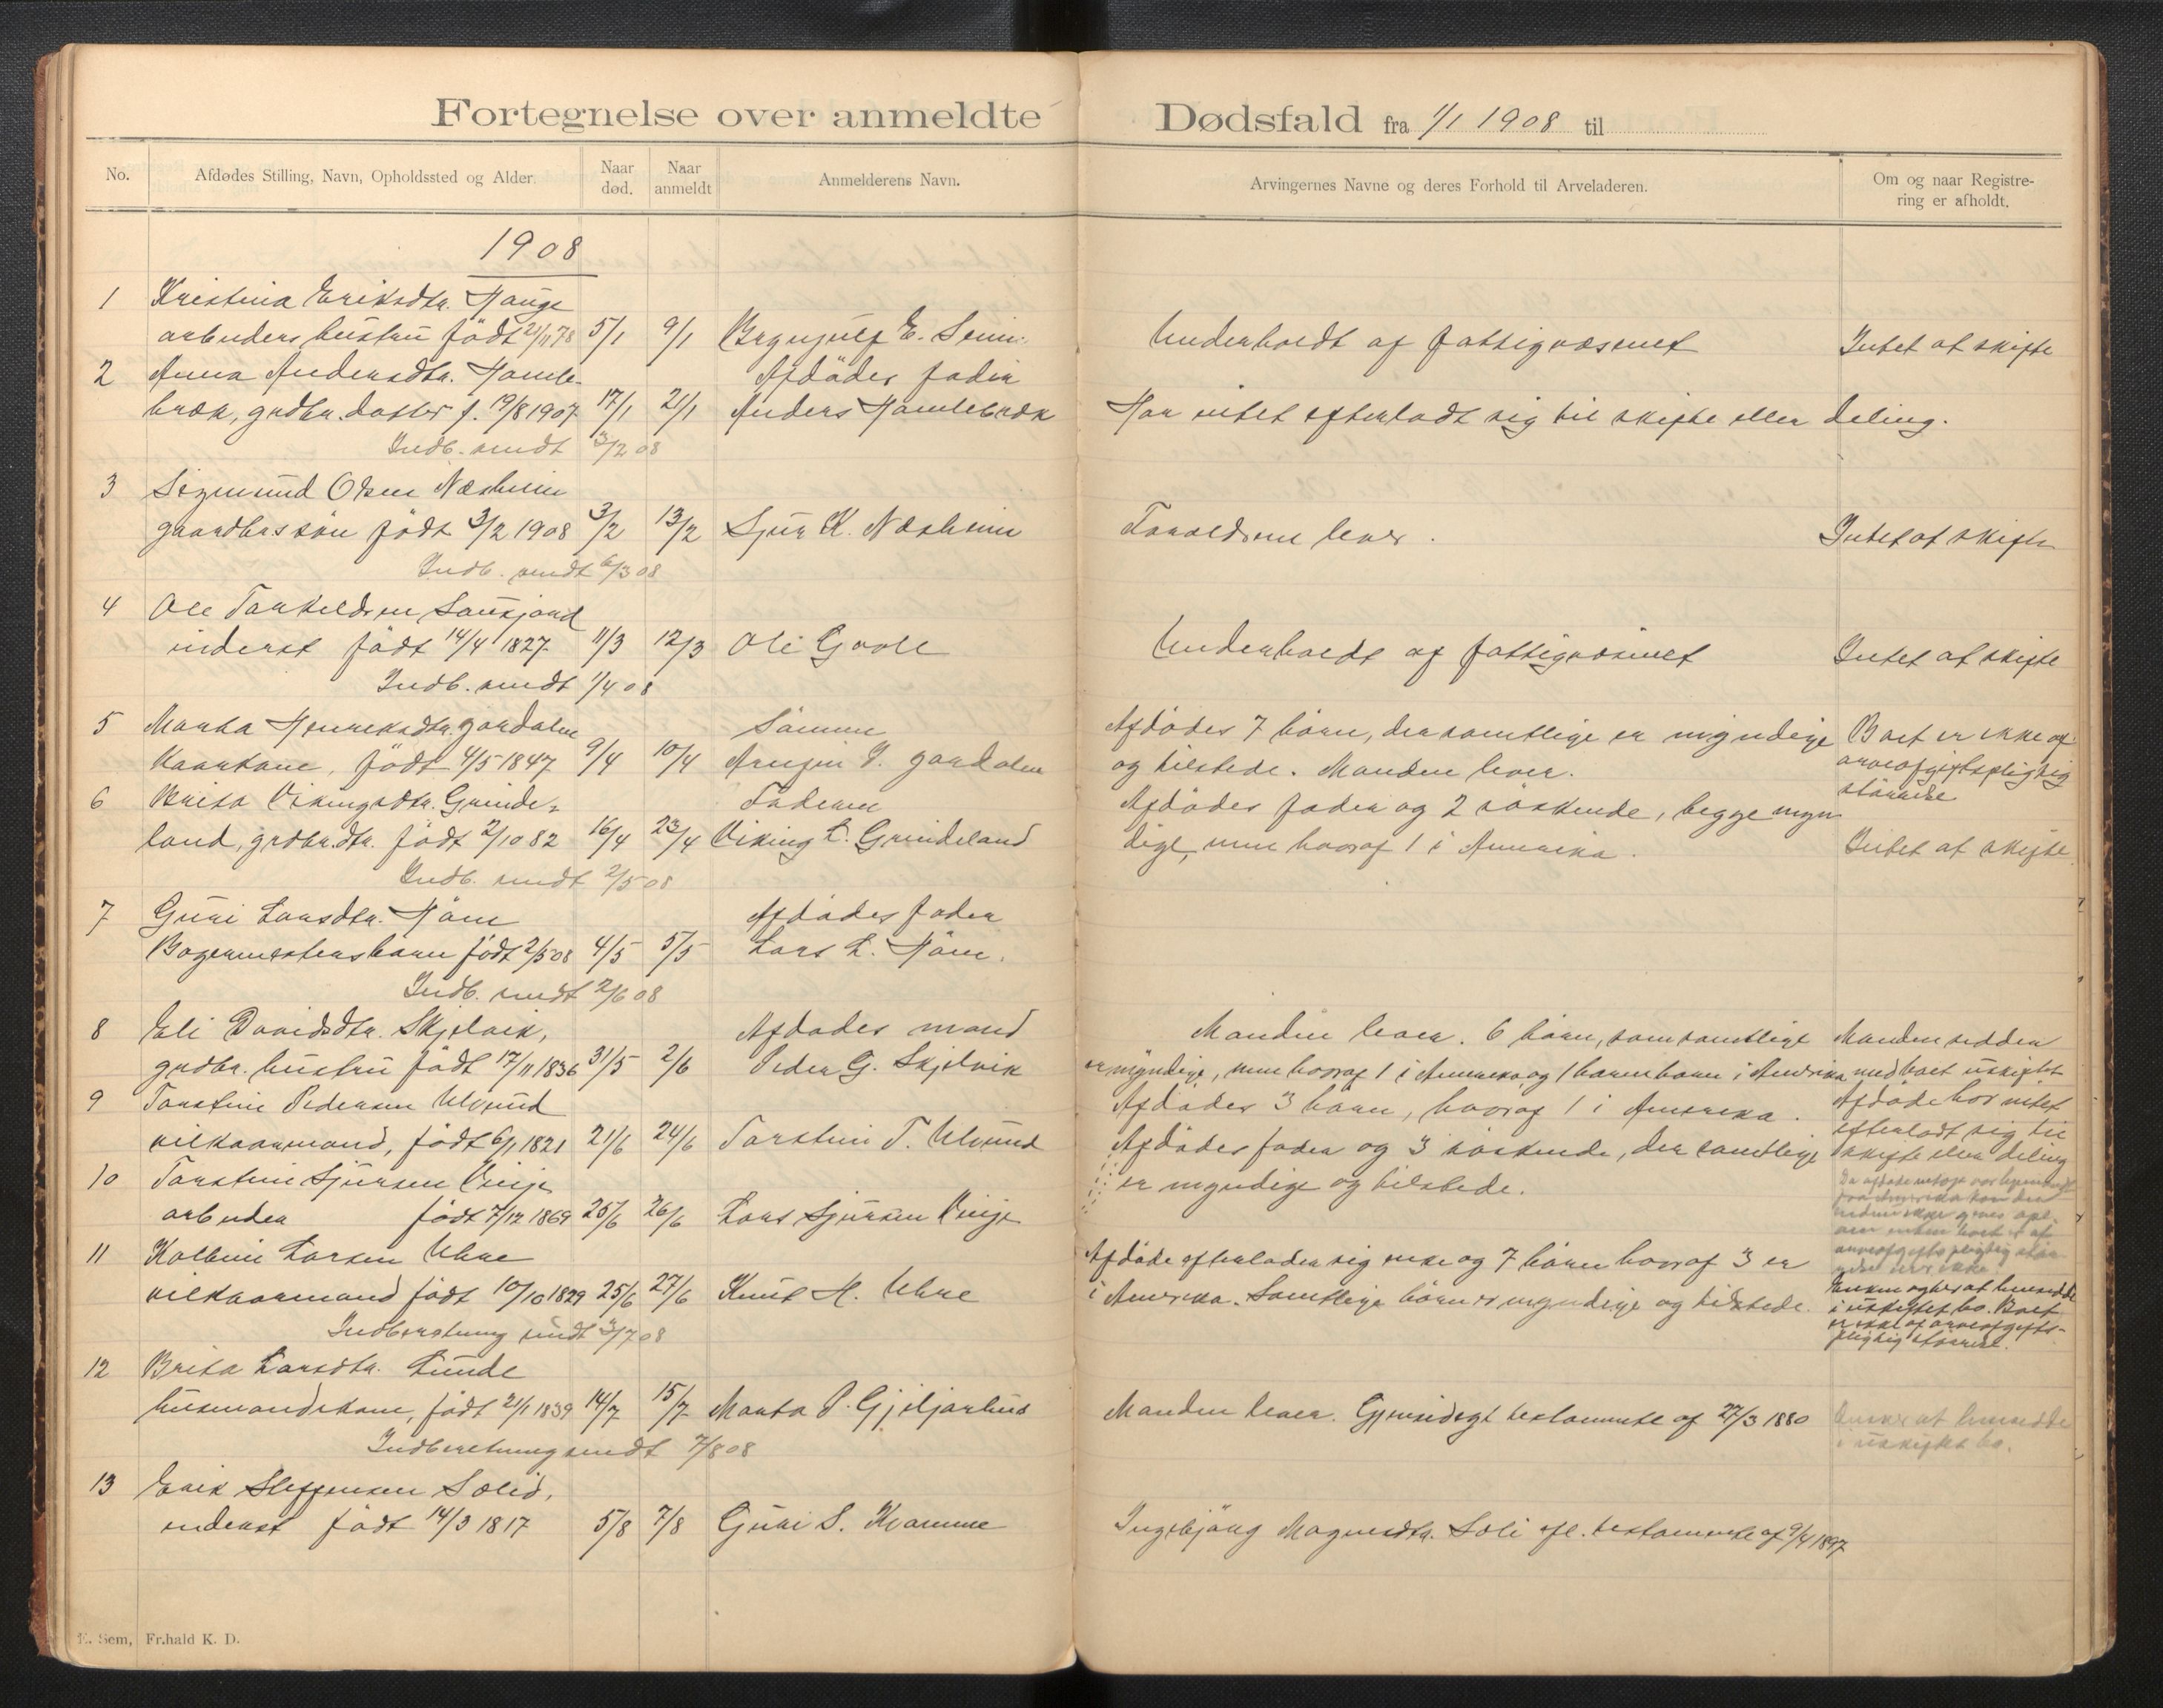 Fortegnelse over anmeldte Dødsfald fra 1/1 1908 til
No. Afdødes Stilling, Navn, Opholdssted og Alder. Naar død. Naar anmeldt Anmelderens Navn. Arvingernes Navne og deres Forhold til Arveladeren. Om og naar Registrering er afholdt.
1908
1 Kristina Eriksdtr. Hauge
arbeiders hustru født 21/11 78 5/1 9/1 Brynjulf E. Seim. Underholdt af fattigvæsenet Intet at skifte
2 Anna Andersdtr. Hamle- Afdødes fader
bræk, grdbr. datter f. 19/8 1907 17/1 21/1 Anders Hamlebræk Har intet efterladt sig til skifte eller deling.
Indb. sendt 3/2 08
3 Sigmund Olsen Næsheim
gaardbr. søn født 3/2 1908 3/2 13/2 Sjur K. Næsheim Forældrene lever. Intet at skifte
Indb. sendt 6/3 08
4 Ole Torkeldsen
inderst født 14/4 1827 11/3 12/3 Ole Gavle Underholdt af fattigvæsenet Intet at skifte
Indb. sendt 1/4 08
5 Marta Henriksdtr. Jordalen Sønnen Afdødes 7 børn, der samtlige er myndige Boet er ikke af
Kaarkone, født 4/5 1847 9/4 10/4 J. Jordalen og tilstede. Manden lever. arveafgiftspligtig
størrelse
6 Brita Vikingsdtr. Grinde- Faderen Afdødes fader og 2 søskende, begge myn
land, grdbr. dtr. født 2/10 82 16/4 23/4 Viking L. Grindeland dige, men hvoraf 1 i Amerika. Intet at skifte
Indb. sendt 2/5 08
7 Guri Larsdtr. Høm Afdødes fader
Bagermesters barn født 2/5 08 4/5 5/5 Lars L. Høm.
Indb. sendt 2/6 08
8 Eli Davidsdtr. Skjelvik, Afdødes mand Manden lever. 6 børn, som samtlige Manden sidder
grdbr. hustru født 17/11 1836 31/5 2/6 Peder G. Skjelvik er myndige, men hvoraf 1 i Amerika, og 1 barnebarn i Amerika med boet uskiftet
9 Torstein Pedersen Ulvund Afdødes 3 børn, hvoraf 1 i Amerika. Afdøde har intet
vilkaarmand, født 6/1 1821 21/6 24/6 Torstein T. Ulvund efterladt sig til
skifte eller deling
10 Torstein Sjursen Vinje Afdødes fader og 3 søskende, der samtlige
arbeider født 7/12 1869 25/6 26/6 Lars Sjursen Vinje er myndige og tilstede.
11 Kolbein Larsen Uhre Afdøde efterlader sig enke og 7 børn hvoraf 3 er
vilkaarmand født 10/10 1829 25/6 27/6 Knut H. Uhre i Amerika. Samtlige børn er myndige og tilstede. Enken agter at hensidde
i uskiftet bo. Boet
er ikke af arveafgifts-
pligtig størrelse.
Indberetning sendt 3/7 08
12 Brita Larsdtr. Lunde
husmandskone, født 21/1 1839 14/7 15/7 Marta P. Gjeljarhus Manden lever. Gjensidigt testamente af 27/3 1880 Ønsker at hensidde
i uskiftet bo.
Indberetning sendt 7/8 08
13 Erik Steffensen Sælid,
inderst født 14/3 1817 5/8 7/8 Guri S. Kvamme Ingebjørg Magnesdtr. Sæli efl. testamente af 9/4 1897
E. Sem, Fr.hald K. D.